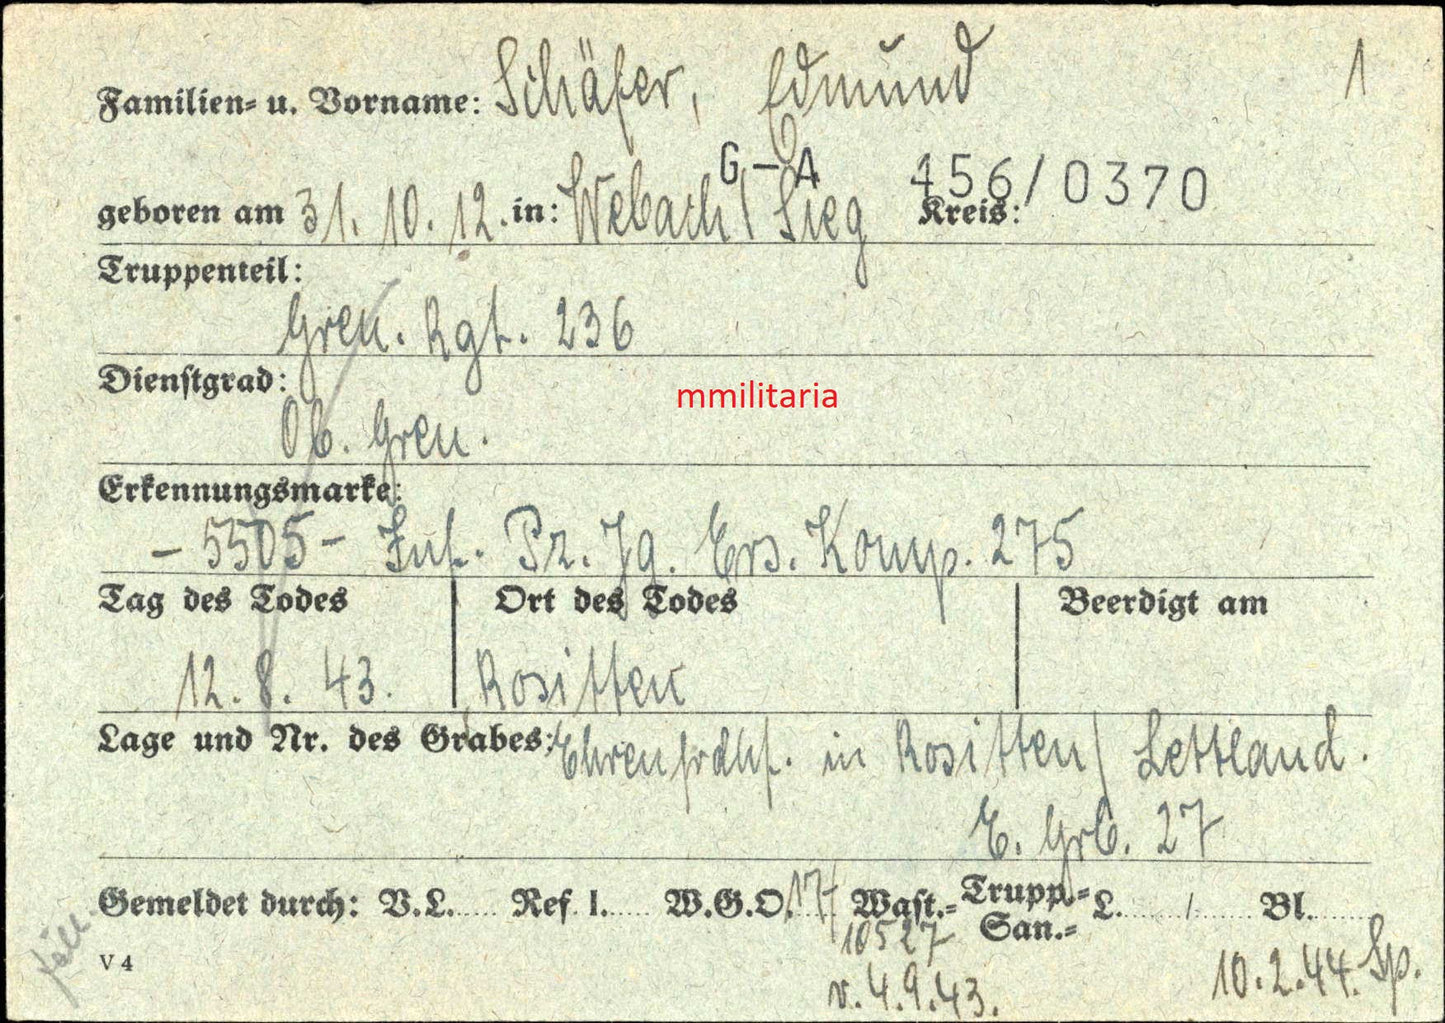 1
Familien= u. Vorname: Schäfer, Edmund
G – A 456/0370
geboren am 31. 10. 12. in: Webach/Sieg Kreis:
Truppenteil:
Gren. Rgt. 236
Dienstgrad:
Ob. Gren.
mmilitaria
Erkennungsmarke:
– 5505 – Inf. Pz. Jg. Ers. Komp. 275
Tag des Todes Ort des Todes Beerdigt am
12. 8. 43. Rositten
Lage und Nr. des Grabes: Ehrenfrdhf. in Rositten/Lettland.
E. Grb. 27
Gemeldet durch: V.L. Ref. I. W.G.O. 17 Wast.= Trupp.= L. / Bl.
10527 San.=
V 4
v. 4.9.43. 10.2.44. Sp.